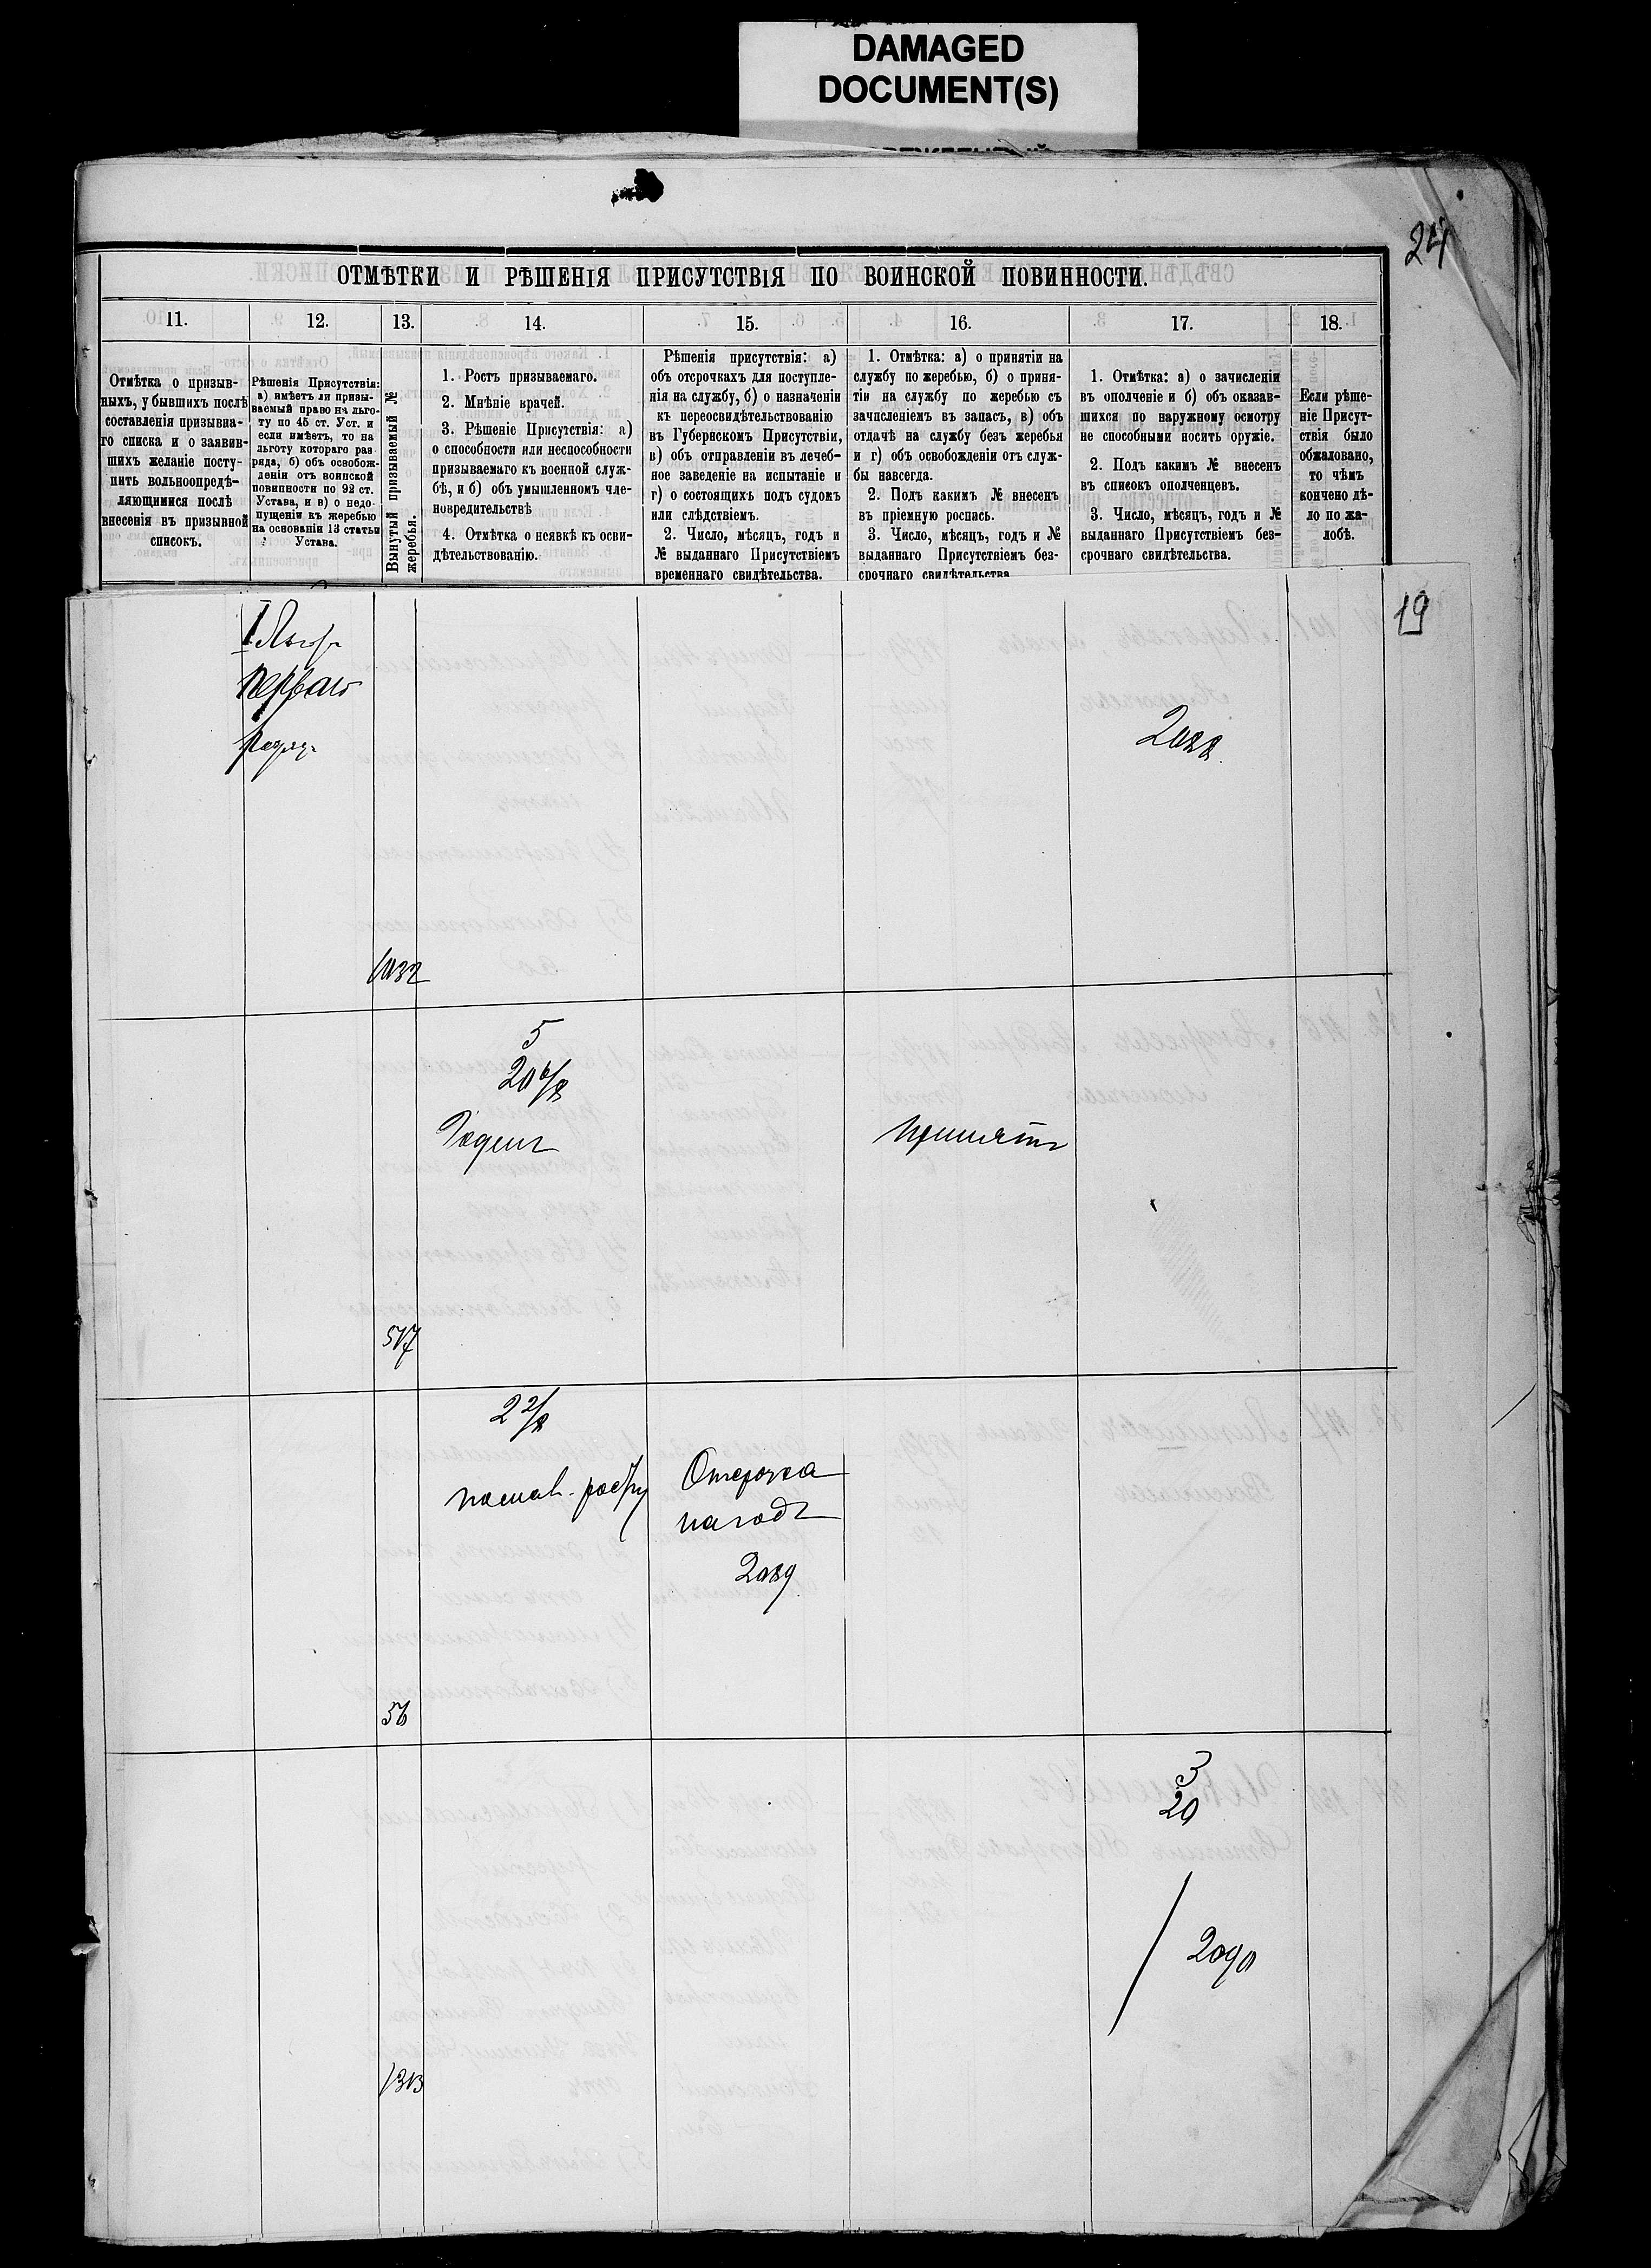 DAMAGED
DOCUMENT(S)
24
ОТМѢТКИ И РѢШЕНІЯ ПРИСУТСТВІЯ ПО ВОИНСКОЙ ПОВИННОСТИ.
11.
12.
13.
14.
15.
16.
17.
18.
Отмѣтка о призыв-
ныхъ, у бывшихъ послѣ
составленія призывна-
го списка и о заявив-
шихъ желаніе посту-
пить вольноопредѣ-
ляющимися послѣ
внесенія въ призывной
списокъ.
Рѣшенія Присутствія:
а) имѣетъ ли призы-
ваемый право на льго-
ту по 45 ст. Уст. и
если имѣетъ, то на
льготу котораго раз
ряда, б) объ освобож-
деніи отъ воинской
повинности по 92 ст.
Устава, и в) о недо-
пущеніи къ жеребью
на основаніи 13 статьи
Устава.
Вынутый призываемый №
жеребья.
1. Ростъ призываемаго.
2. Мнѣніе врачей.
3. Рѣшеніе Присутствія: а)
о способности или неспособности
призываемаго къ военной служ-
бѣ, и б) объ умышленномъ чле-
новредительствѣ
4. Отмѣтка о неявкѣ къ осви-
дѣтельствованію.
Рѣшенія присутствія: а)
объ отсрочкахъ для поступле-
нія на службу, б) о назначеніи
къ переосвидѣтельствованію
въ Губернскомъ Присутствіи,
в) объ отправленіи въ лечеб-
ное заведеніе на испытаніе и
г) о состоящихъ подъ судомъ
или слѣдствіемъ.
2. Число, мѣсяцъ, годъ и
№ выданнаго Присутствіемъ
временнаго свидѣтельства.
1. Отмѣтка: а) о принятіи на
службу по жеребью, б) о приня-
тіи на службу по жеребью съ
зачисленіемъ въ запасъ, в) объ
отдачѣ на службу безъ жеребья
и г) объ освобожденіи отъ служ-
бы навсегда.
2. Подъ какимъ № внесенъ
въ пріемную роспись.
3. Число, мѣсяцъ, годъ и №
выданнаго Присутствіемъ без-
срочнаго свидѣтельства
1. Отмѣтка: а) о зачисленіи
въ ополченіе и б) объ оказав-
шихся по наружному осмотру
не способными носить оружіе.
2. Подъ какимъ № внесенъ
въ списокъ ополченцевъ.
3. Число, мѣсяцъ, годъ и №
выданнаго Присутствіемъ без-
срочнаго свидѣтельства.
Если рѣше-
ніе Присут-
ствія было
обжаловано,
то чѣмъ
кончено дѣ-
ло по жа-
лобѣ.
19
перваго
2088
1032
5
20 6/8
Годенъ
Принятъ
517
2 2/8
Отсрочка
на годъ
2089
56
3
20
2090
1313